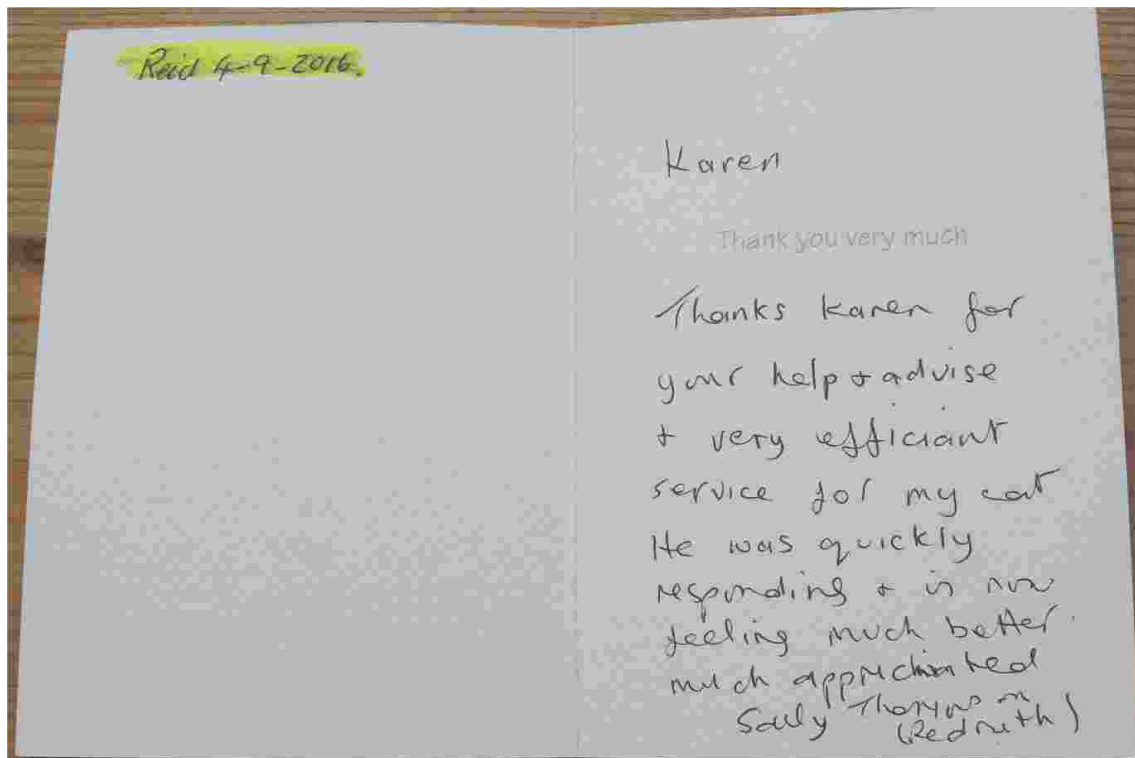 Recd 4-9-2016.
Karen
Thank you very much
Thanks Karen for
your help + advise
+ very efficiant
service for my cat
He was quickly
responding + is now
feeling much better.
much apprichiated
Sally Thompson
(Redruth)